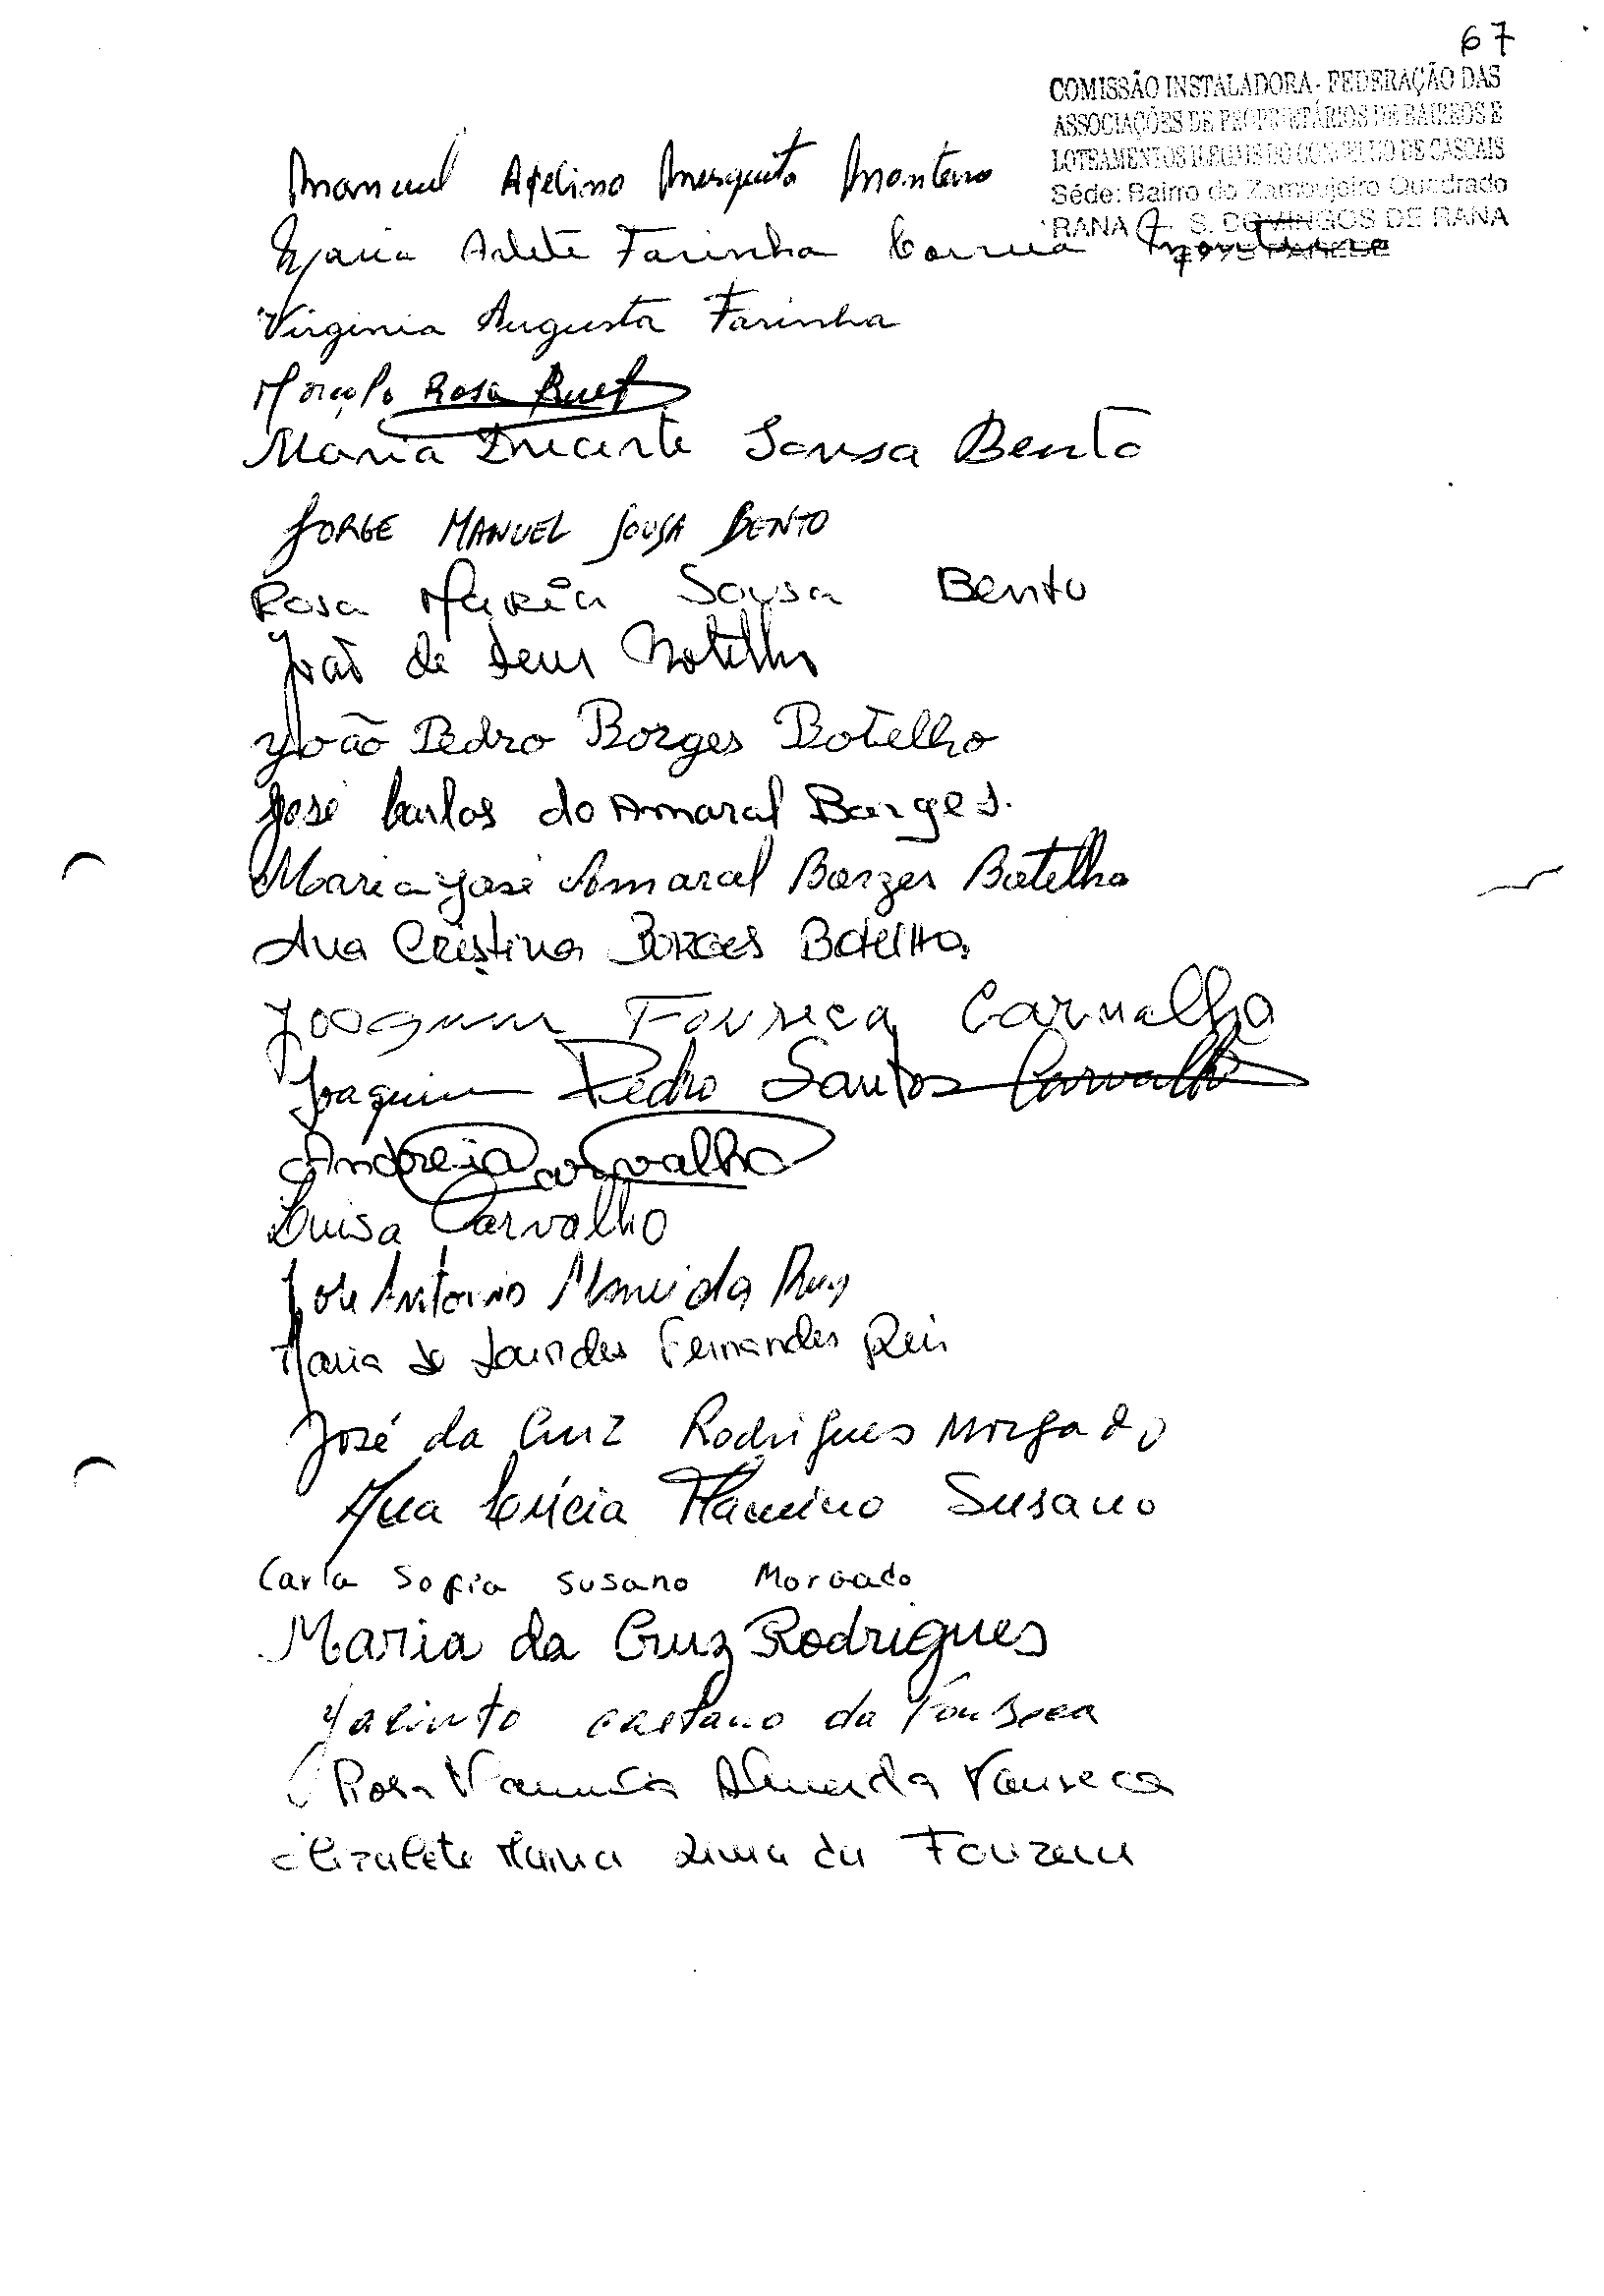 67
COMISSÃO INSTALADORA - FEDERAÇÃO DAS
ASSOCIAÇÕES DE PROPRIETÁRIOS DE BAIRROS E
LOTEAMENTOS ILEGAIS DO CONCELHO DE CASCAIS
Séde: Bairro do Zambujeiro Quadrado
RANA - S. DOMINGOS DE RANA
2775 PAREDE
Manuel Avelino Mesquita Monteiro
Maria Arlete Farinha Correia Monteiro
Virginia Augusta Farinha
Rosa
Maria Duarte Sousa Bento
JORGE MANUEL SOUSA BENTO
Rosa Maria Sousa Bento
João de Deus Botelho
João Pedro Borges Botelho
José Carlos do Amaral Borges.
Maria José Amaral Borges Botelho
Ana Cristina Borges Botelho
Joaquim Fonseca Carvalho
Joaquim Pedro Santos Carvalho
Andreia Carvalho
Luisa Carvalho
José Antonio Almeida
Maria de Lourdes Fernandes Reis
José da Cruz Rodrigues Morgado
Ana Lúcia Flamino Susano
Carla Sofia Susano Morgado
Maria da Cruz Rodrigues
Jacinto Caetano da Fonseca
Rosa Almeida Fonseca
Elizabete Maria Lima da